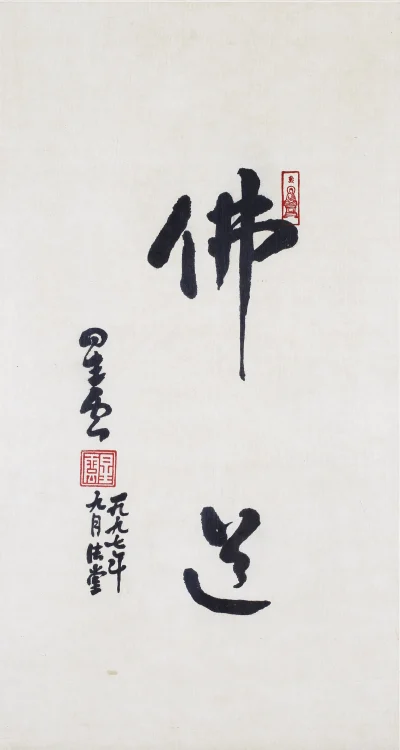 佛道
星雲
星雲
一九九七年
九月法堂